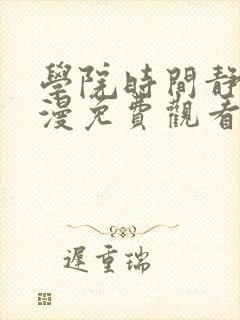 學院時間靜
漫免費觀看
遲重瑞